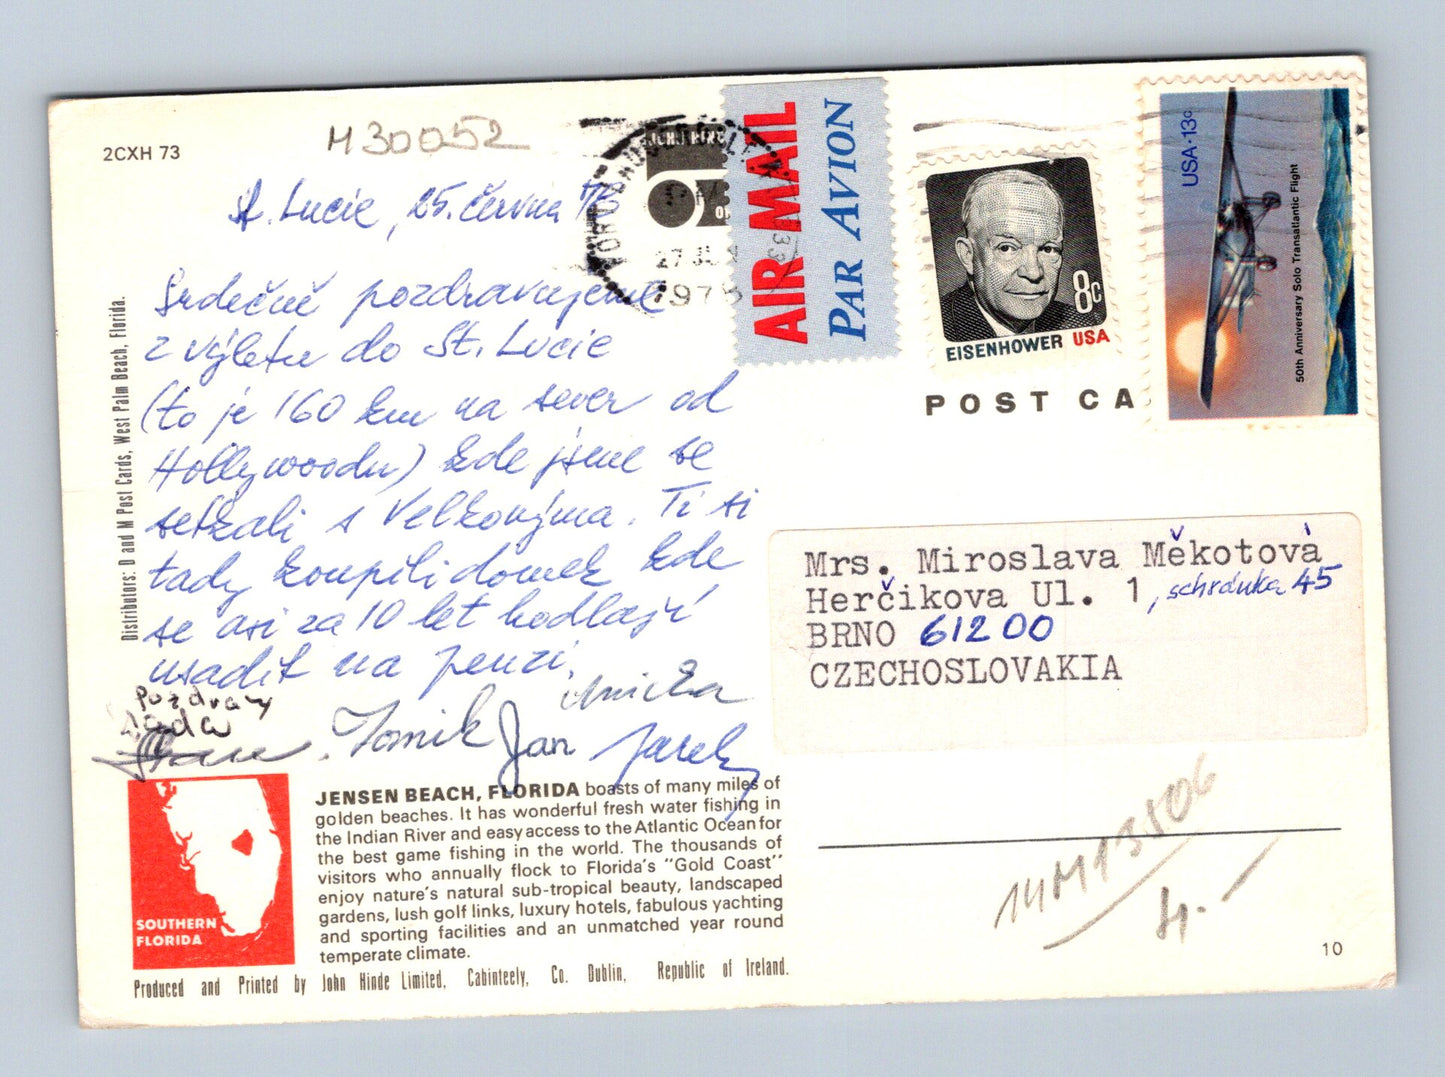 2CXH 73
H30052
St. Lucie, 25. června 78
Srdečně pozdravujeme
z výletu do St. Lucie
(to je 160 km na sever od
Hollywoodu) kde jsme se
setkali s Velkovýma. Ti si
tady koupili domek kde
se asi za 10 let hodlají
usadit na penzi.
Pozdravy
Anička
Tomik Jan Jarek
Distributors: D and M Post Cards, West Palm Beach, Florida.
SOUTHERN
FLORIDA
JENSEN BEACH, FLORIDA boasts of many miles of
golden beaches. It has wonderful fresh water fishing in
the Indian River and easy access to the Atlantic Ocean for
the best game fishing in the world. The thousands of
visitors who annually flock to Florida's "Gold Coast"
enjoy nature's natural sub-tropical beauty, landscaped
gardens, lush golf links, luxury hotels, fabulous yachting
and sporting facilities and an unmatched year round
temperate climate.
Produced and Printed by John Hinde Limited, Cabinteely, Co. Dublin, Republic of Ireland.
PM
27 JUN
1978
AIR MAIL
PAR AVION
8c
EISENHOWER USA
USA·13c
50th Anniversary Solo Transatlantic Flight
POST CA
Mrs. Miroslava Měkotová
Herčikova Ul. 1, schránka 45
BRNO 61200
CZECHOSLOVAKIA
14M13506
4.-
10